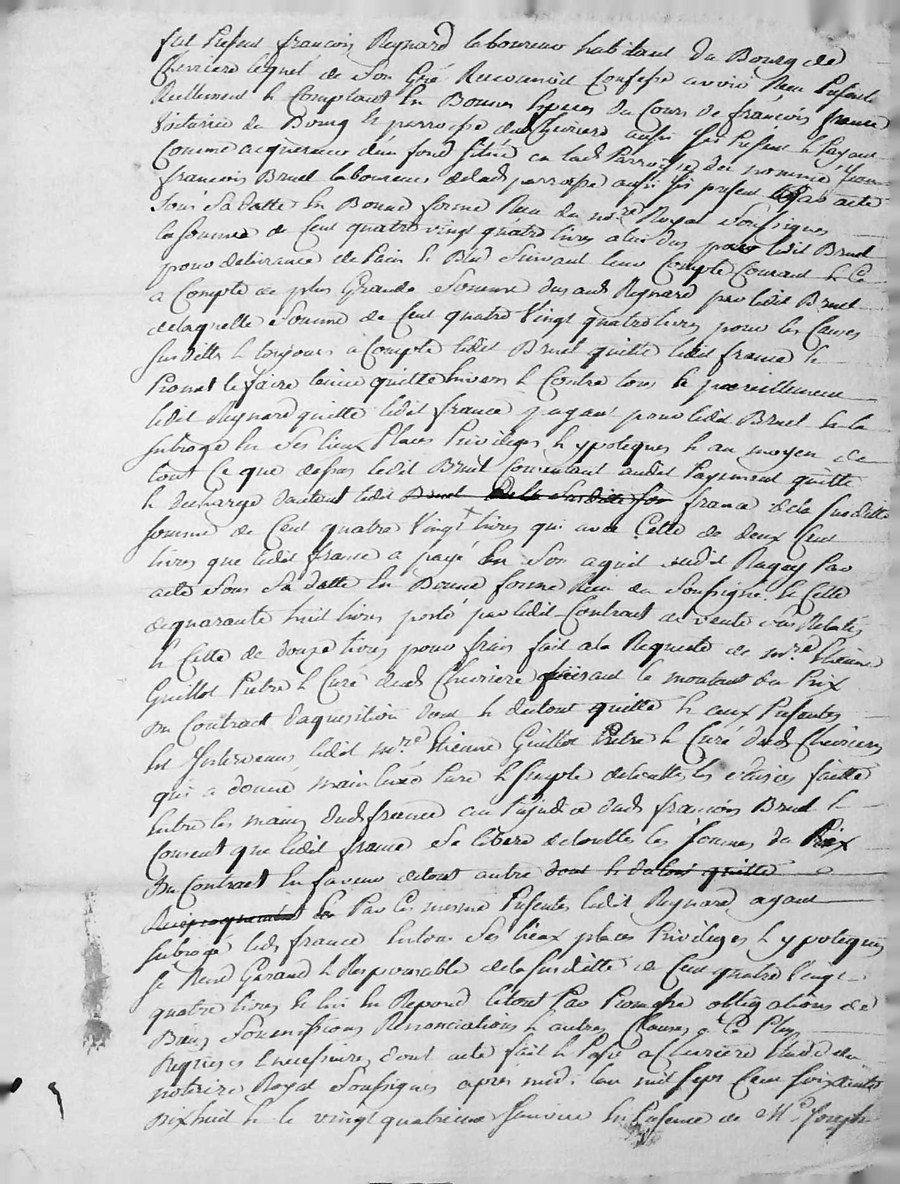 fut présent françois Reynard laboureur habitant du Bourg de
Chevriere lequel de Son Gré Reconnoit Confesse avoir Reçu présente
Reellement & Comptant En Bonnes Especes du Cours de françois france
voiturier du Bourg & parroisse dud Chevriere aussi Ici present & payant
Comme acquereur d'un fond situé en lad Parroisse du nommé
françois Bruel laboureur deladte parroisse aussi Ici present par acte
sous Sa datte En Bonne forme Reçu du nore Royal soussigné
la somme de Cent quatre vingt quatre livres a lui dus par ledit Bruel
pour delivrance de pain & Bled Suivant leur Compte Courant & Ce
a Compte de plus Grande Somme dus aud Reynard par ledit Bruel
de laquelle somme de Cent quatre Vingt quatre livres pour les Causes
susdittes & toujours a Compte ledit Bruel quitte ledit france &
Promet le faire tenir quitte Envers & Contre tous & pareillement
ledit Reynard quitte ledit france payant pour ledit Bruel & la
subrogé En Ses lieux Places Privileges hypoteques & au moyen de
tout Ce que dessus ledit Bruel Consentant audit Payement quitte
& decharge dautant ledit Bruel de la Susditte som france dela susditte
somme de Cent quatre Vingt livres qui avec Celle de deux Cent
livres que ledit france a payé En Son aquit audit Par
acte Sous Sa datte En Bonne forme Reçu du Soussigné & Celle
de quarante huit livres porté par ledit Contract de vente sus Relatés
& Celle de douze livres pour frais fait ala Requette de mre Etienne
Guillot Prêtre & Curé dud Chevriere faisant le montant du Prix
du Contract daquisition dont & dutout quitte & aux Presentes
Est Intervenu ledit mre Etienne Guillot Prêtre & Curé dud Chevriere
qui a donné mainlevée pure & simple detouttes les saisies faitte
Entre les mains dud france au Prejudice dud françois Bruel &
Consent que ledit france Se libere detouttes les sommes du Prix
du Contract En faveur detout autre dont & dutout quitte
Reciproquement & Par Ces mesme Presentes ledit Reynard ayant
subrogé led france Entous Ses lieux places Privileges hypoteques
se Rend Garand & Responsable delasusditte de Cent quatre Vingt
quatre livres & lui En Repond letout Par Promesse obligations de
Biens Soumissions Renonciations & autres Clauses a Ce Plus
Requises & necessaires dont acte fait & Passé a Chevriere Etude du
notaire Royal Soussigné après midi lan mil sept Cent soixante
dix huit & le vingt quatrieme Janvier En presence de Me Joseph